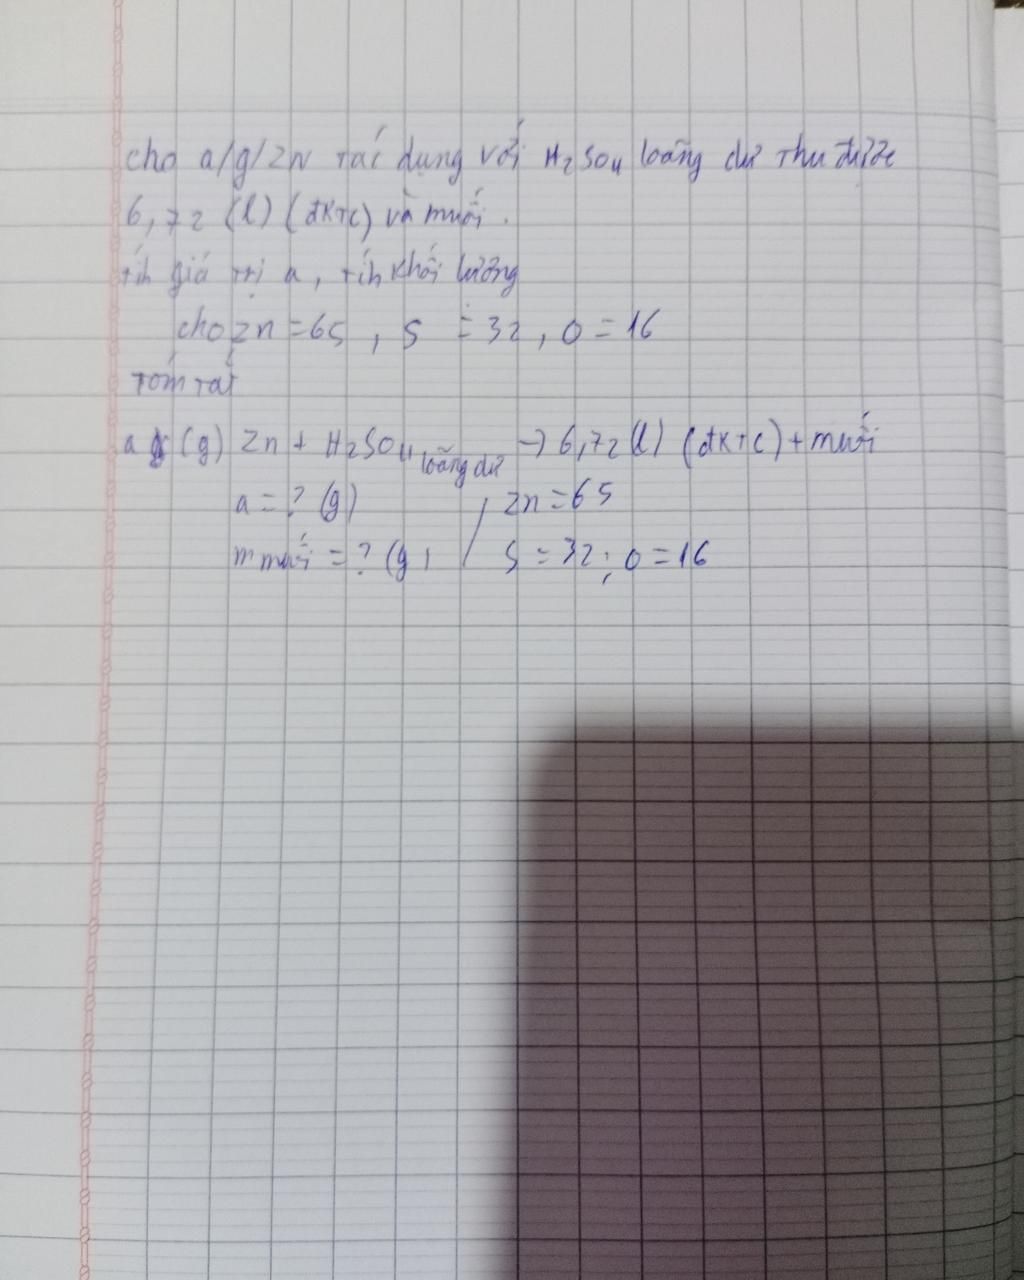 cho a/g/zn tác dụng với H2SO4 loãng dư thu được
6,72 (l) (đktc) và muối.
tíh giá trị a, tíh khối lượng
cho zn = 65, S = 32, O = 16
Tóm tắt
a (g) Zn + H2SO4 loãng dư → 6,72 (l) (đktc) + muối
a = ? (g) / zn = 65
m muối = ? (g) / S = 32; O = 16